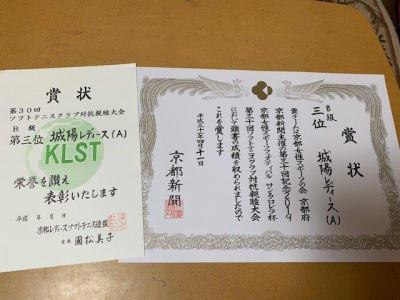 賞状
第30回
ソフトテニスクラブ対抗親睦大会
B級
第三位 城陽レディース(A)
KLST
栄誉を讃え
表彰いたします
平成 年 月 日
京都レディースソフトテニス連盟
会長 國松美子
賞状
B級
三位 城陽レディース(A)
貴チームは京都女性スポーツの会 京都府
京都新聞主催の第三十回記念2019
京都女性スポーツフェスティバル サンケロレラ杯
第三十回ソフトテニスクラブ対抗親睦大会
において頭書の成績を収められましたので
これを賞します
平成三十一年四月十一日
京都新聞